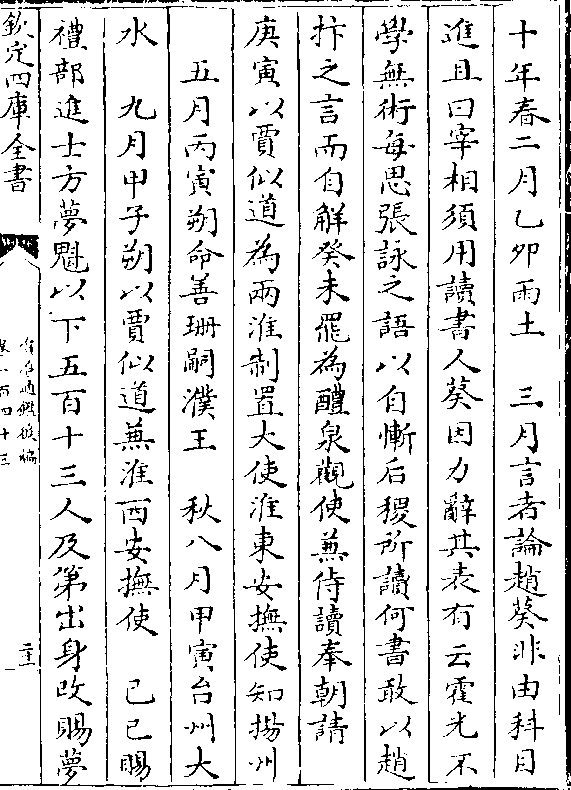 十年春二月乙卯雨土　三月言者論趙葵非由科目
進且曰宰相須用讀書人葵因力辭其表有云霍光不
學無術每思張詠之語以自慚后稷所讀何書敢以趙
抃之言而自解癸未罷為醴泉觀使兼侍讀奉朝請
庚寅以賈似道為兩淮制置大使淮東安撫使知揚州
五月丙寅朔命善珊嗣濮王　秋八月甲寅台州大
水　九月甲子朔以賈似道兼淮西安撫使　己巳賜
禮部進士方夢魁以下五百十三人及第出身改賜夢
欽定四庫全書
資治通鑑後編
卷一百四十三